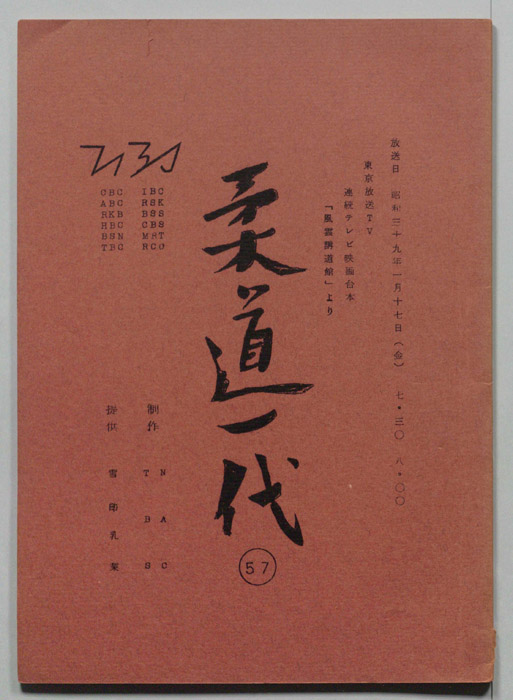 放送日 昭和三十九年一月十七日（金） 七・三〇 八・〇〇
東京放送TV
連続テレビ映画台本
「風雲講道館」より
柔道一代
57
IBC
RSK
BSS
CBS
MRT
RCO
CBC
ABK
RCB
RKC
BSN
TBC
制作 NAC
TBS
提供 雪印乳業